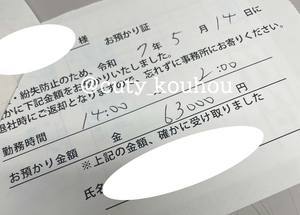 様 お預かり証
・紛失防止のため、令和 7年 5月 14日に
かに下記金額をお預かりいたしました。
退社時にご返却となりますので、忘れずに事務所にお寄りください。
勤務時間 14:00
:00
お預かり金額 金 63000円
※上記の金額、確かに受け取りました
氏名
@cuty_kouhou